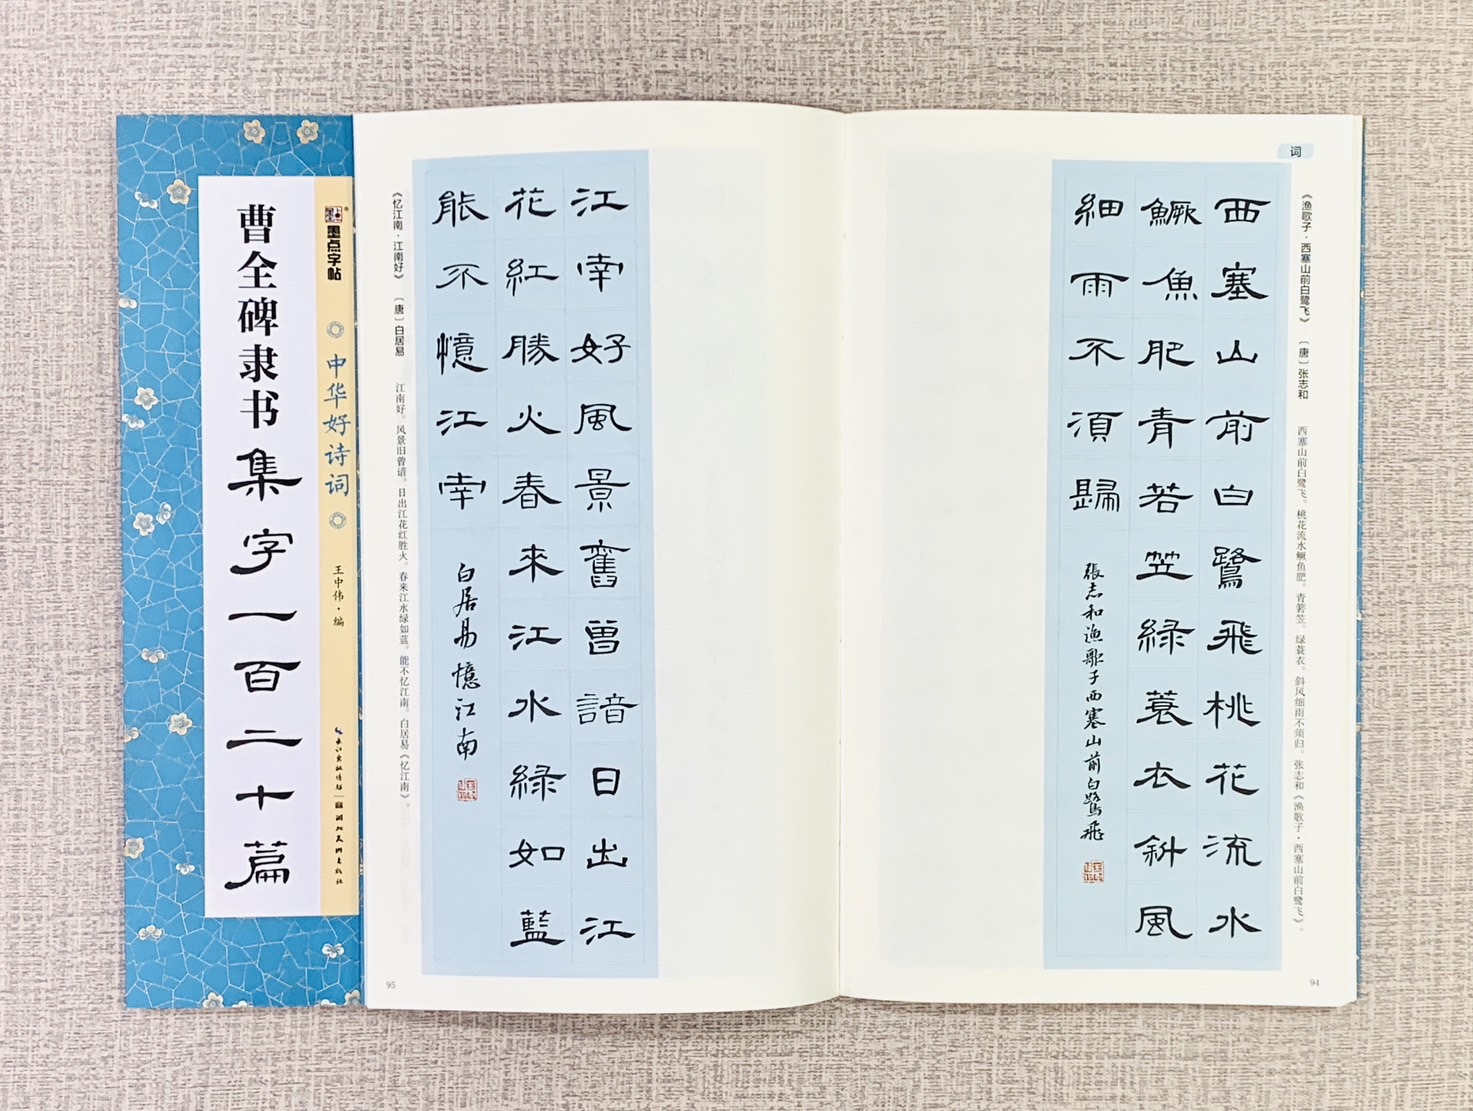 曹全碑隶书集字一百二十篇
墨点字帖
中华好诗词
王中伟·编
长江出版传媒 湖北美术出版社
词
《渔歌子·西塞山前白鹭飞》 〔唐〕张志和 西塞山前白鹭飞。桃花流水鳜鱼肥。青箬笠。绿蓑衣。斜风细雨不须归。张志和《渔歌子·西塞山前白鹭飞》。
西塞山前白鷺飛桃花流水
鱖魚肥青若笠緑蓑衣斜風
細雨不須歸
張志和漁歌子西塞山前白鷺飛
94
江南好風景舊曾諳日出江
花紅勝火春來江水緑如藍
能不憶江南
白居易憶江南
《忆江南·江南好》 〔唐〕白居易 江南好。风景旧曾谙。日出江花红胜火。春来江水绿如蓝。能不忆江南。白居易《忆江南》。
95